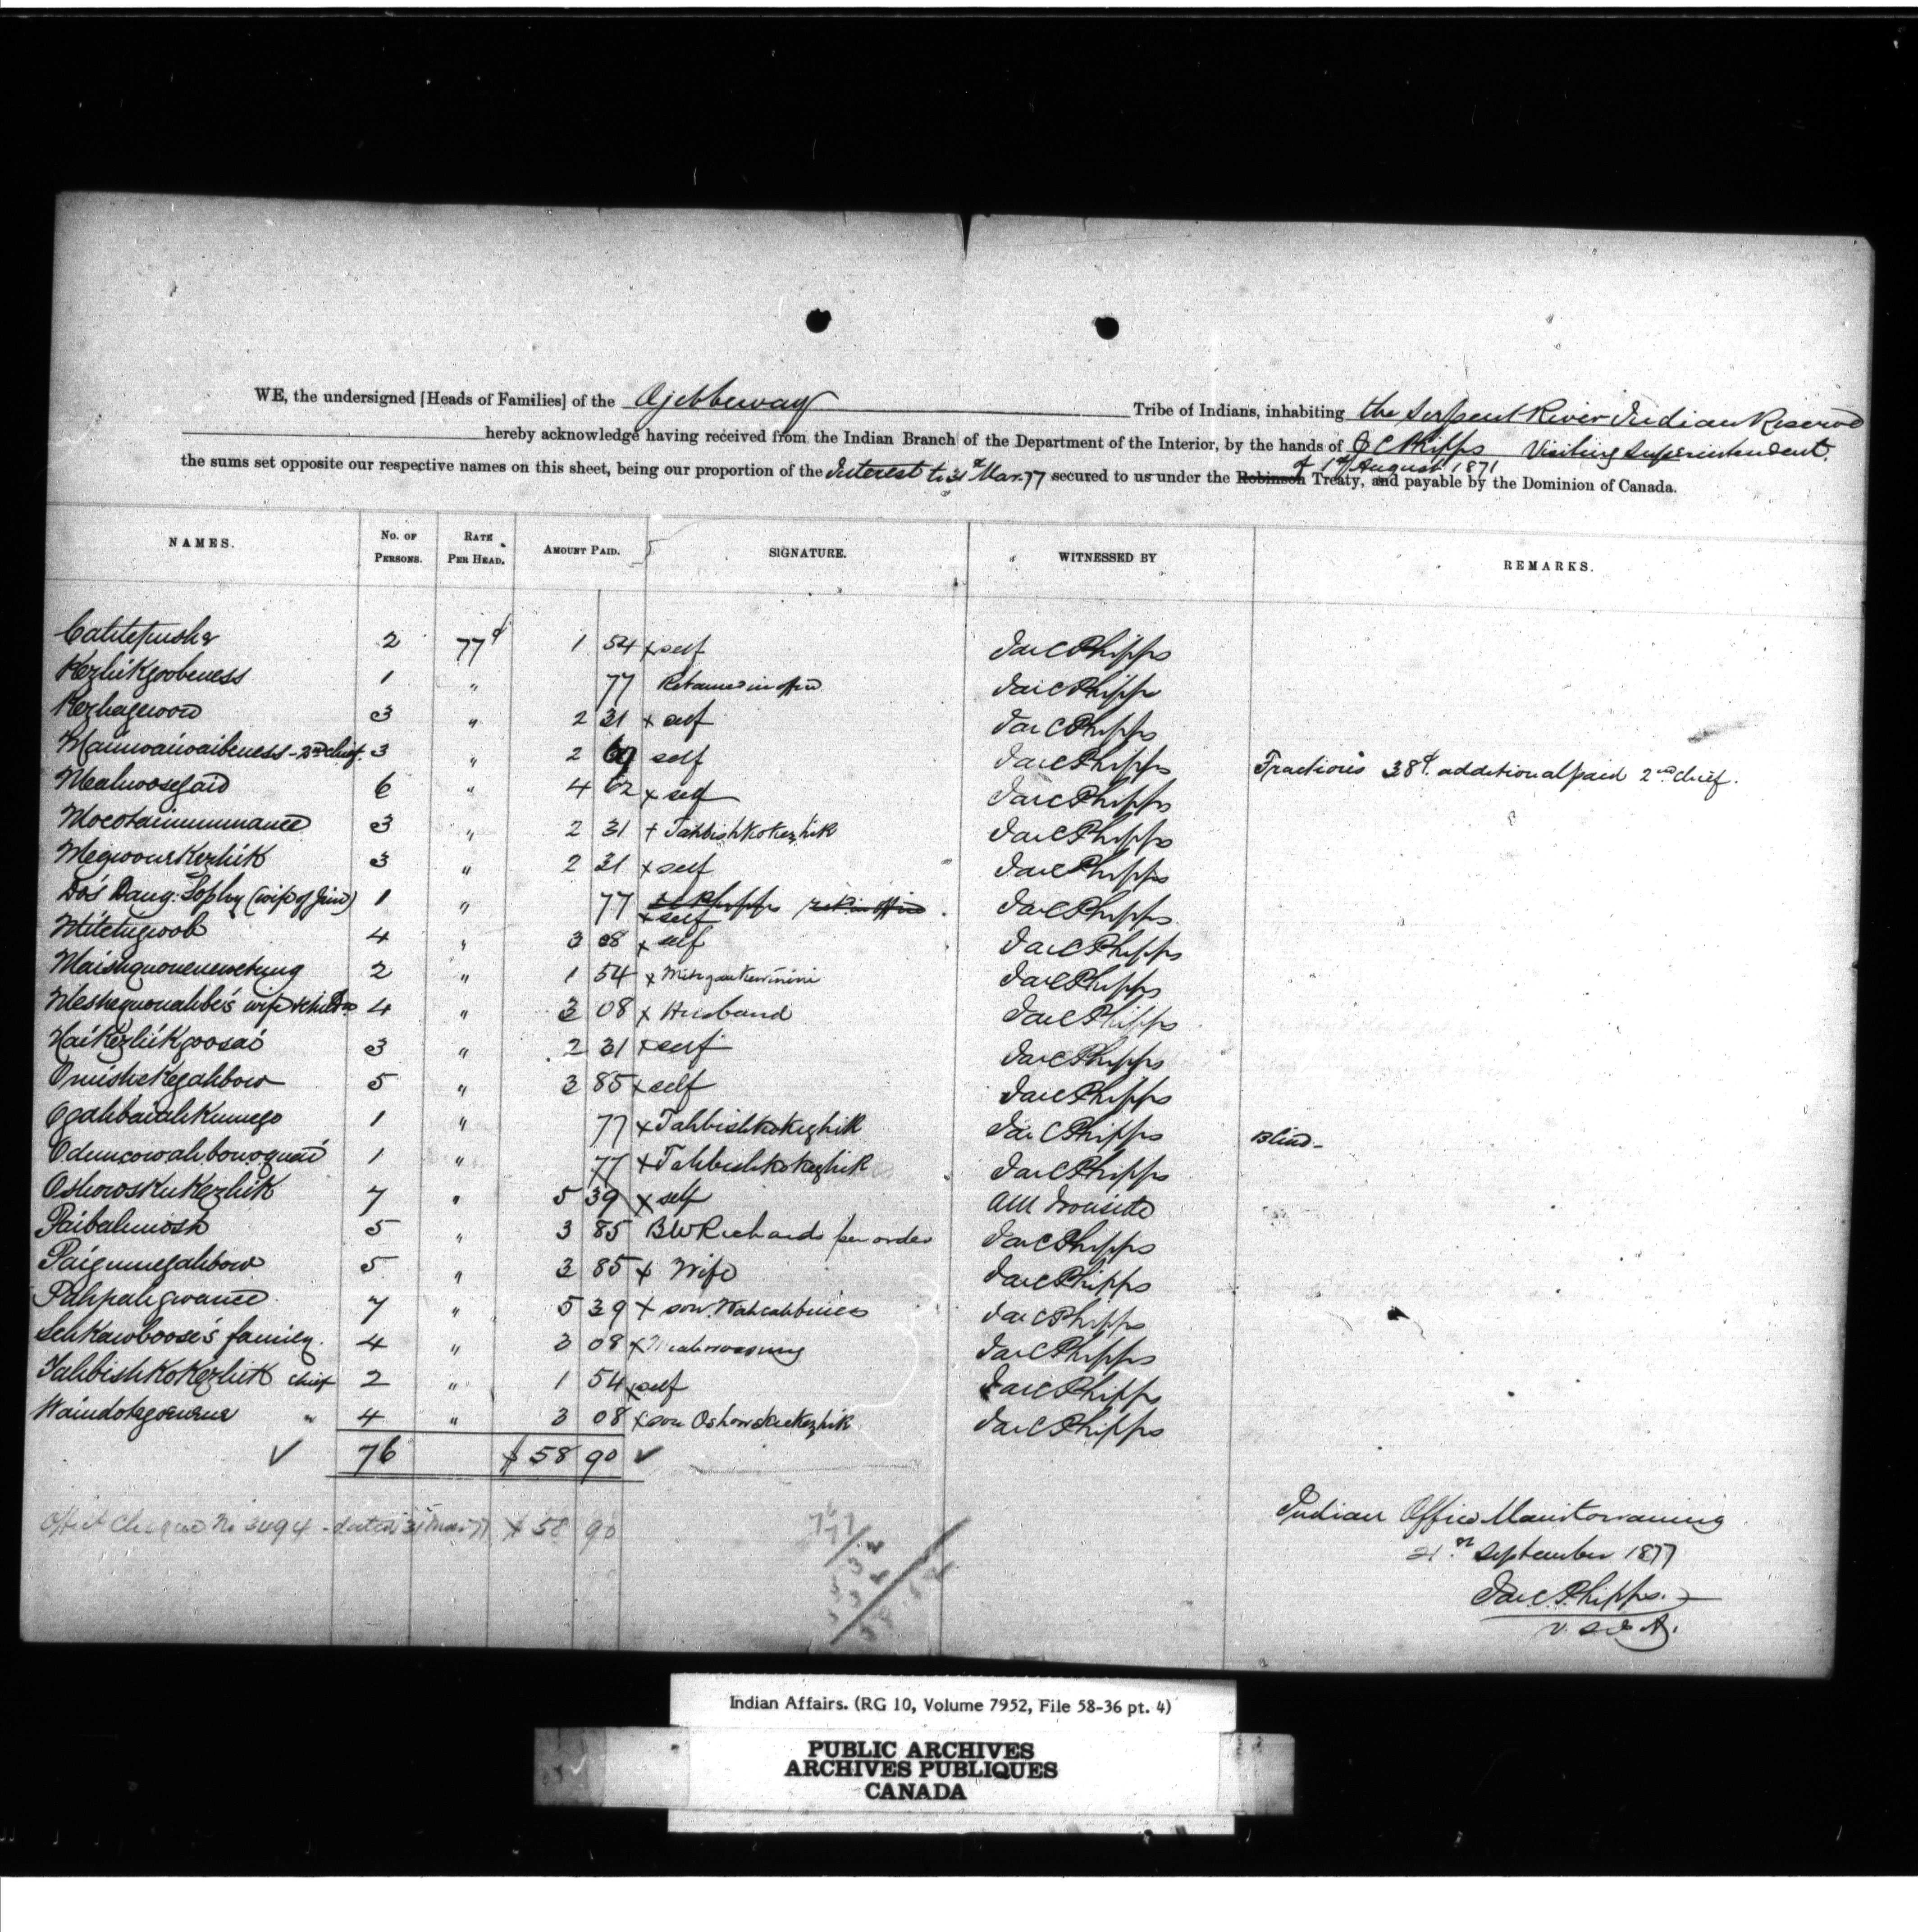 WE, the undersigned [Heads of Families] of the Ojebbeway Tribe of Indians, inhabiting the Serpent River Indian Reserve
hereby acknowledge having received from the Indian Branch of the Department of the Interior, by the hands of J C Phipps Visiting Superintendent.
the sums set opposite our respective names on this sheet, being our proportion of the Interest to 31st Mar. 77 secured to us under the Robinson Treaty, of 1st August 1871 and payable by the Dominion of Canada.
NAMES. No. OF PERSONS. RATE PER HEAD. AMOUNT PAID. SIGNATURE. WITNESSED BY REMARKS.
2 77¢ 1 54 x self Jas C Phipps
Kezhikgoobeness 1 " 77 Retained in office Jas C Phipps
Kezhagewow 3 " 2 31 x self Jas C Phipps
Mainwaiwaibeness - 2nd Chief. 3 " 2 69 self Jas C Phipps Fractions 38¢ additional paid 2nd Chief.
Meahwoosegaid 6 " 4 62 x self Jas C Phipps
3 " 2 31 + Tahbishkokezhik Jas C Phipps
Megwonskezhik 3 " 2 31 x self Jas C Phipps
Do's Daug: Sophy (wife of Jim) 1 " 77 Jas C Phipps ret in office x self Jas C Phipps
Mitetugoob 4 " 3 08 x self Jas C Phipps
2 " 1 54 x Jas C Phipps
Meshequonahbe's wife & children 4 " 3 08 x Husband Jas C Phipps
Naikezhikgoosai 3 " 2 31 x self Jas C Phipps
Omishekegahbow 5 " 3 85 x self Jas C Phipps
Ogahbaiahkumego 1 " 77 x Tahbishkokezhik Jas C Phipps Blind -
1 " 77 x Tahbishkokezhik Jas C Phipps
Oshowskukezhik 7 " 5 39 x self
Paibahmosh 5 " 3 85 BW Richards per order Jas C Phipps
Paigumegahbow 5 " 3 85 x Wife Jas C Phipps
Pahpahgwance 7 " 5 39 x son. Jas C Phipps
Sehkawboose's family. 4 " 3 08 x Jas C Phipps
Tahbishkokezhik chief 2 " 1 54 x self Jas C Phipps
" 4 " 3 08 x son Oshowskukezhik Jas C Phipps
76 $ 58 90
Cheque No 3494 - dated 31st Mar. 77 $ 58 90
Indian Office Manitowaning
21st September 1877
Jas. C. Phipps.
V. S. I. A.
Indian Affairs. (RG 10, Volume 7952, File 58-36 pt. 4)
PUBLIC ARCHIVES
ARCHIVES PUBLIQUES
CANADA